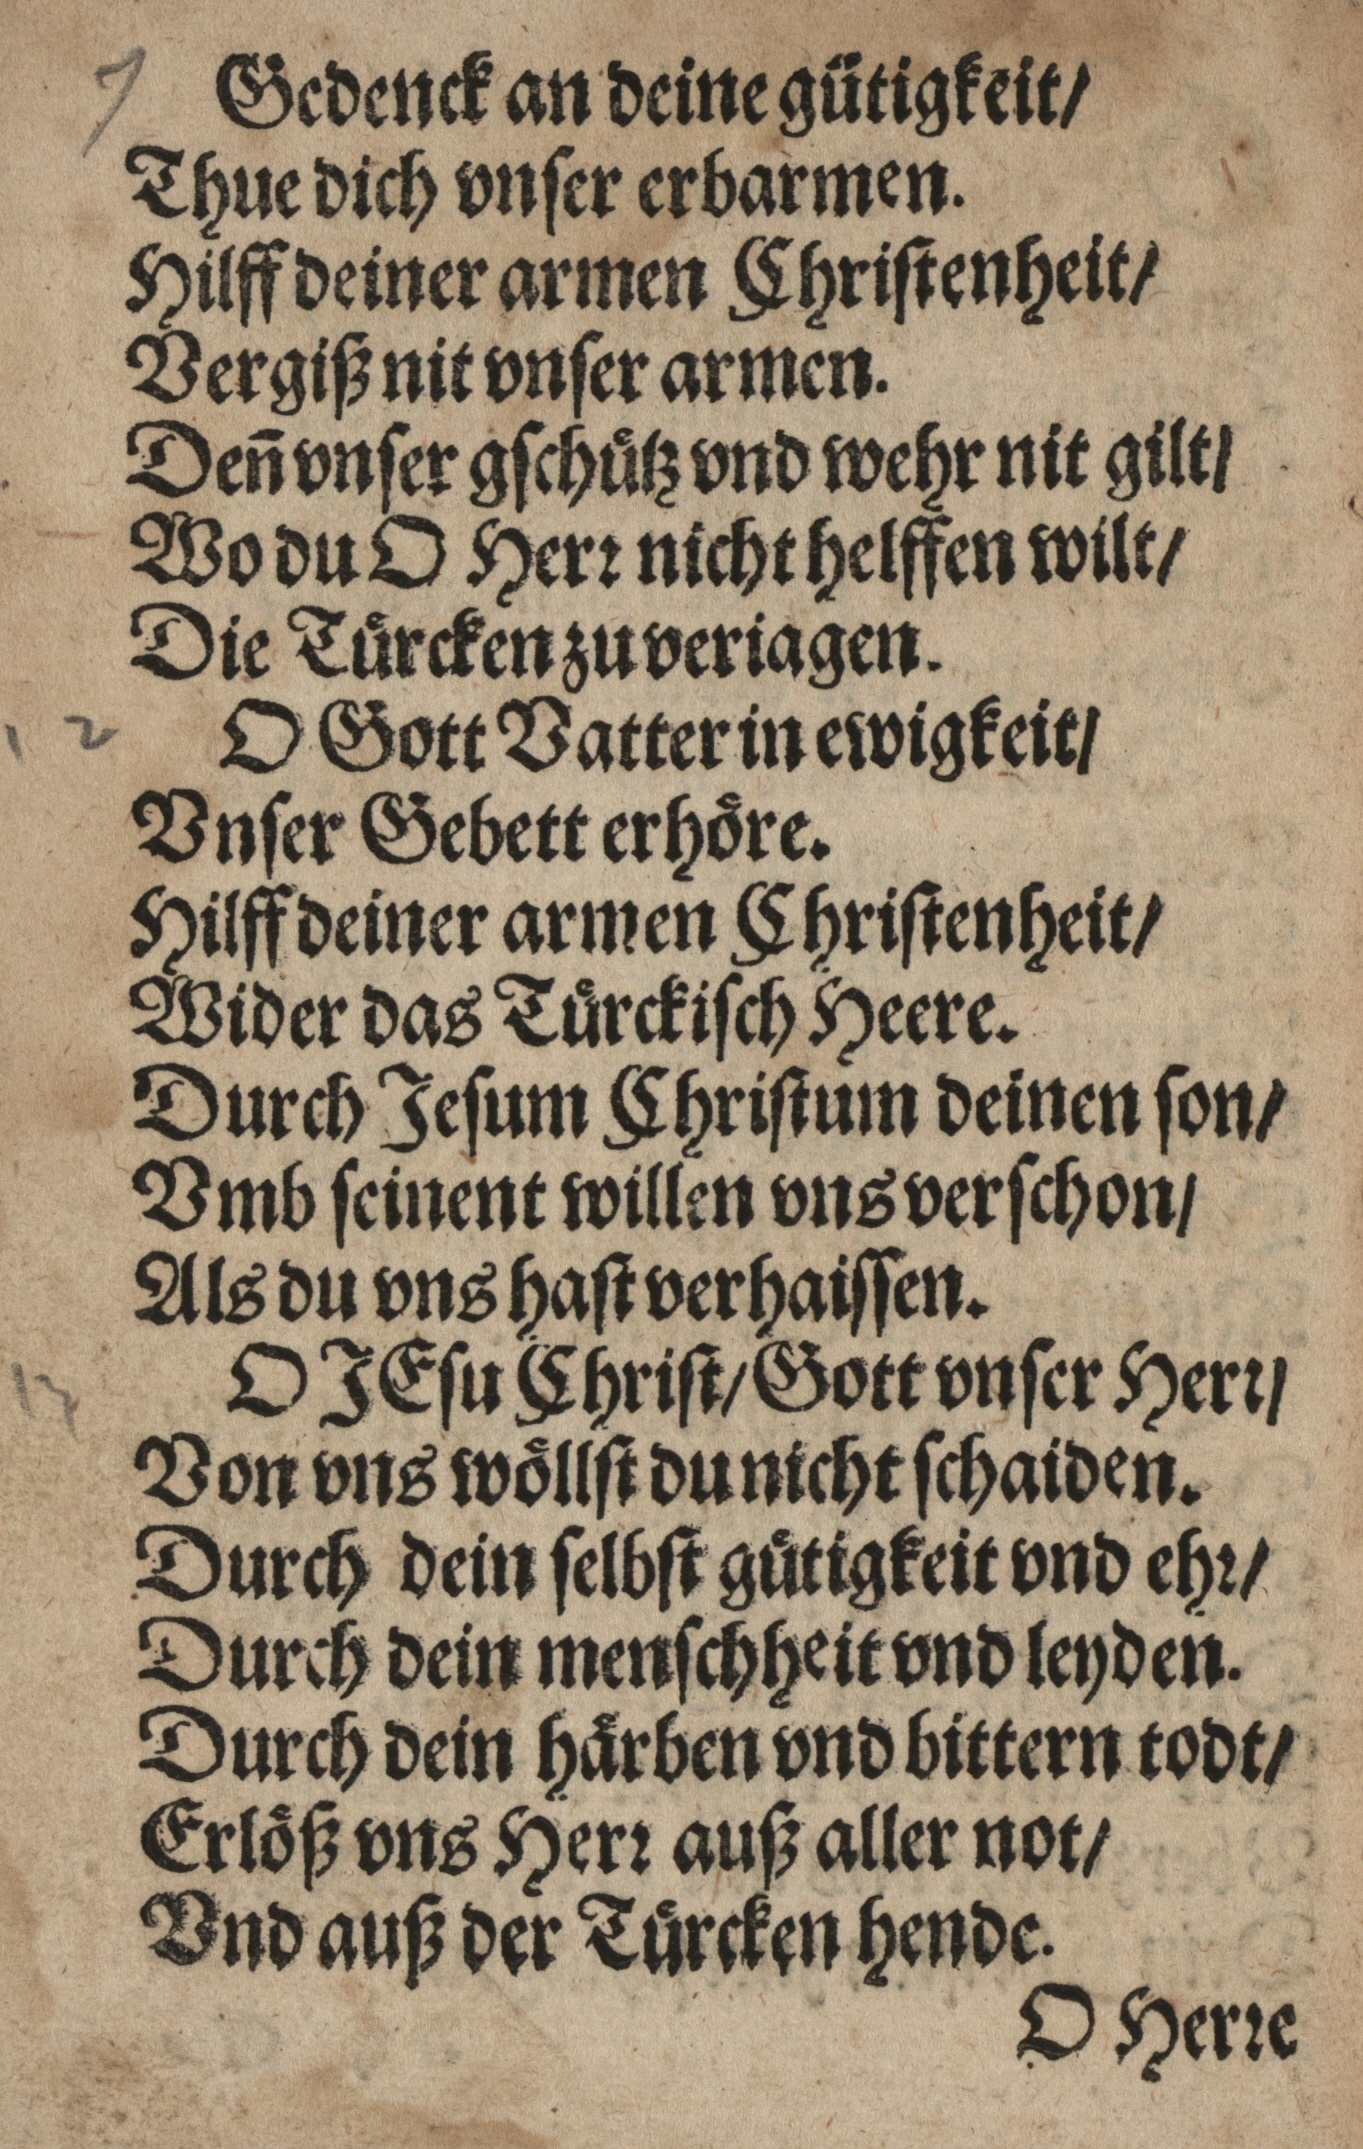 Gedenck an deine gütigkeit/
Thue dich vnser erbarmen.
Hilff deiner armen Christenheit/
Vergiß nit vnser armen.
Deñ vnser gschuͤtz vnd wehr nit gilt/
Wo du O Herr nicht helffen wilt/
Die Tuͤrcken zu veriagen.
12 O Gott Vatter in ewigkeit/
Vnser Gebett erhoͤre.
Hilff deiner armen Christenheit/
Wider das Tuͤrckisch Heere.
Durch Jesum Christum deinen son/
Vmb seinent willen vns verschon/
Als du vns hast verhaissen.
13 O JEsu Christ/ Gott vnser Herr/
Von vns woͤllst du nicht schaiden.
Durch dein selbst guͤtigkeit vnd ehr/
Durch dein menschheit vnd leyden.
Durch dein haͤrben vnd bittern todt/
Erloͤß vns Herr auß aller not/
Vnd auß der Tuͤrcken hende.
O Herre